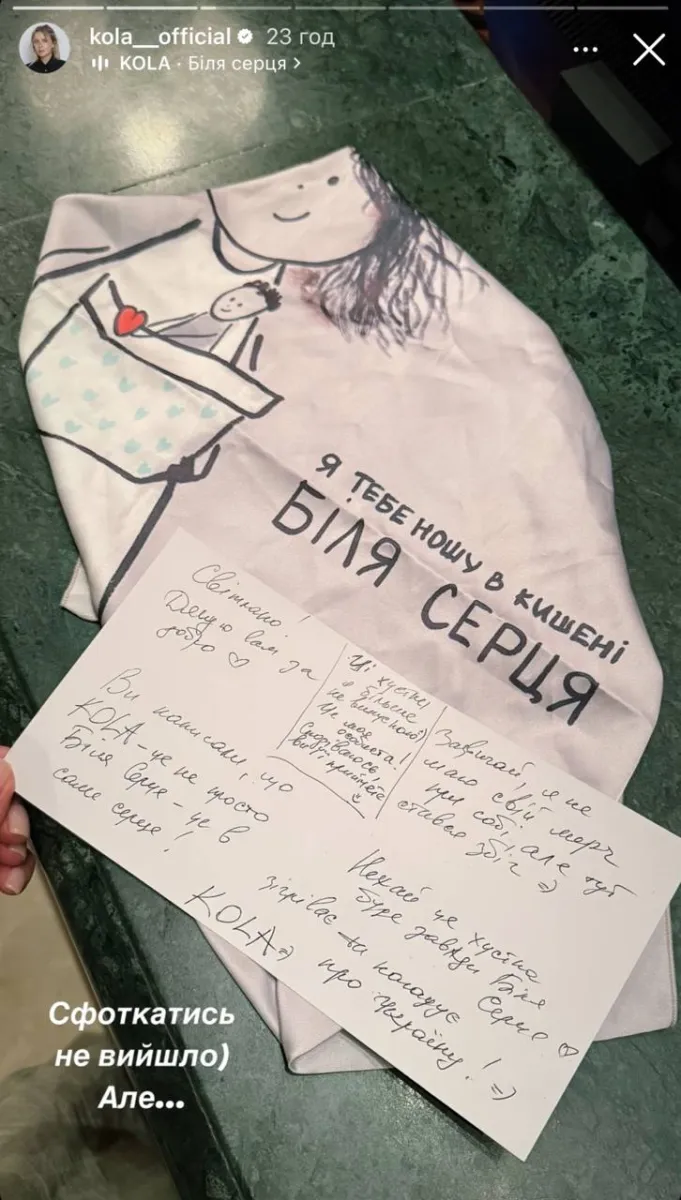 kola__official 23 год
KOLA · Біля серця >
Я ТЕБЕ НОШУ В КИШЕНІ
БІЛЯ СЕРЦЯ
Світлано!
Дякую вам за
добро ♡
Ви написали, що
KOLA – це не просто
Біля Серце – це в
саме серце!
Ці хустки
більше
не випускаю!
Це моя
особиста!
Сподіваюсь,
ви приймете
Зазвичай, я не
маю свій мерч
при собі, але тут
стався збіг =)
Нехай ця хустка
буде завжди Біля
Серця ♡
зігріває та нагадує
про Україну! =)
KOLA =)
Сфоткатись
не вийшло)
Але...